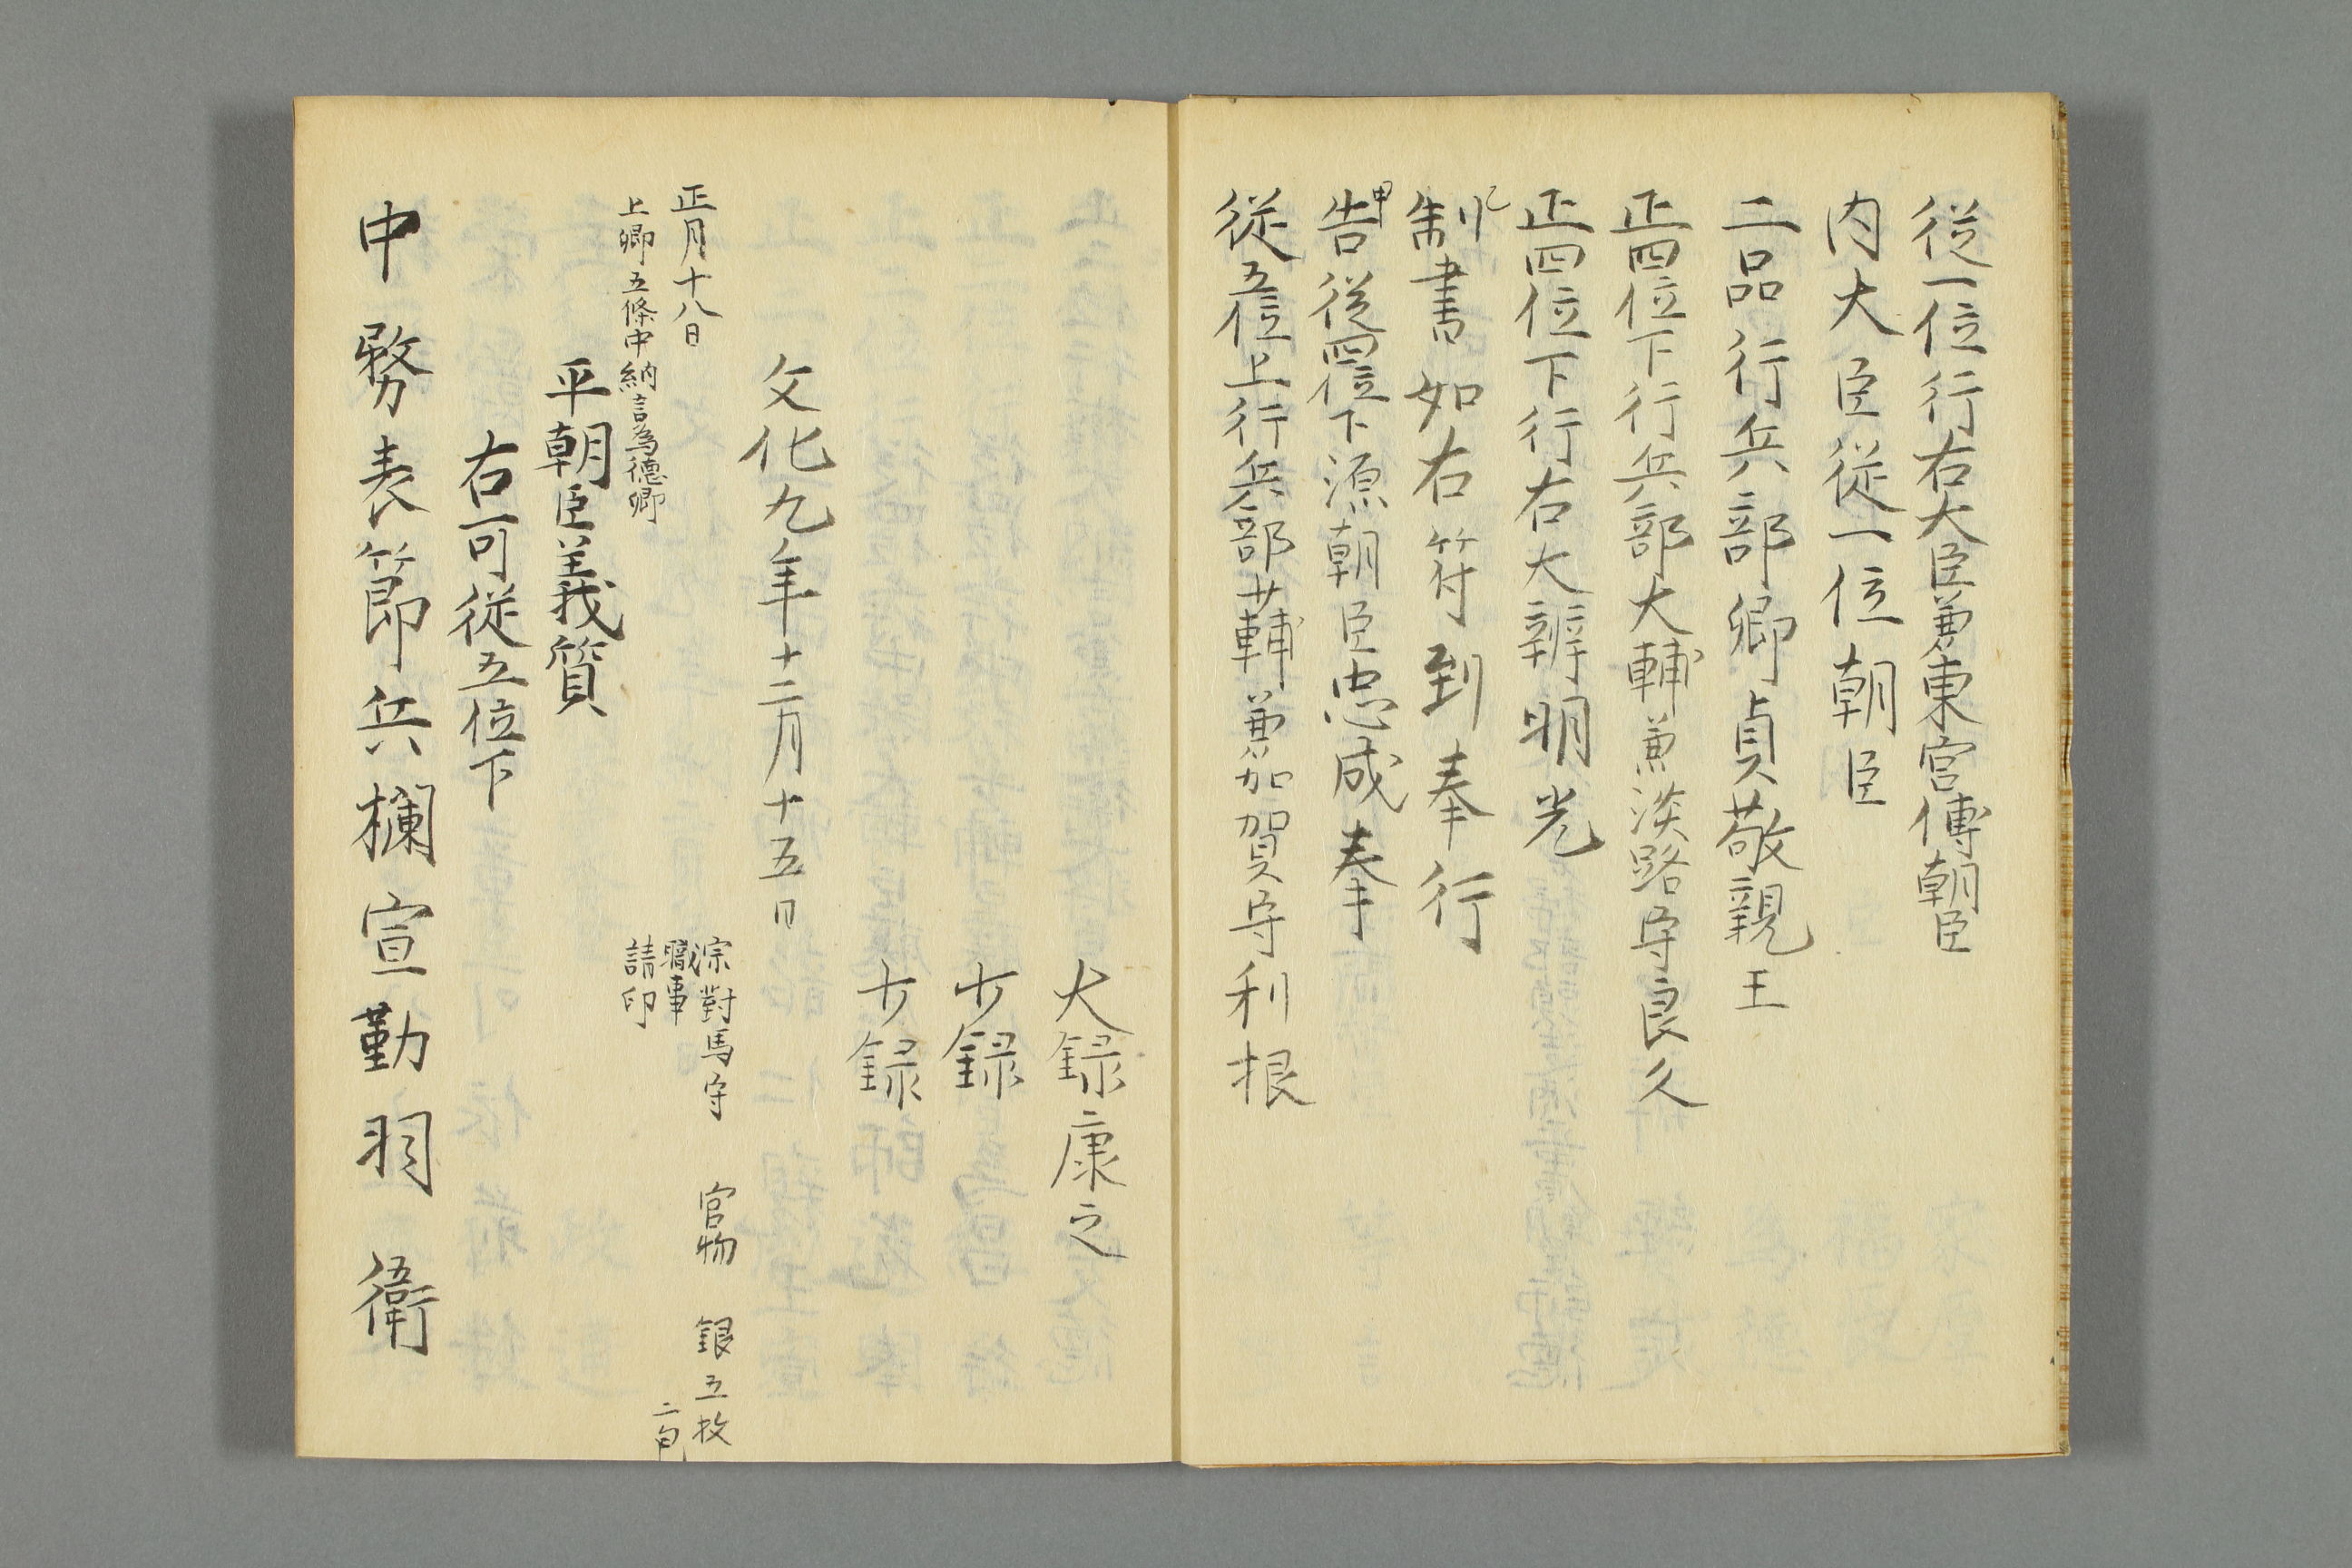 従一位行右大臣兼東宮傅朝臣
内大臣従一位朝臣
二品行兵部卿貞敬親王
正四位下行兵部大輔兼淡路守良久
正四位下行右大辨明光
制書如右符到奉行
告従四位下源朝臣忠成奉
従五位上行兵部少輔兼加賀守利根
大録康之
少録
少録
文化九年十二月十五日
正月十八日
宗對馬守 官物 銀五枚
職事
二匁
上卿五條中納言為徳卿
請印
平朝臣義質
右可従五位下
中務表節兵欄宣勤羽衛